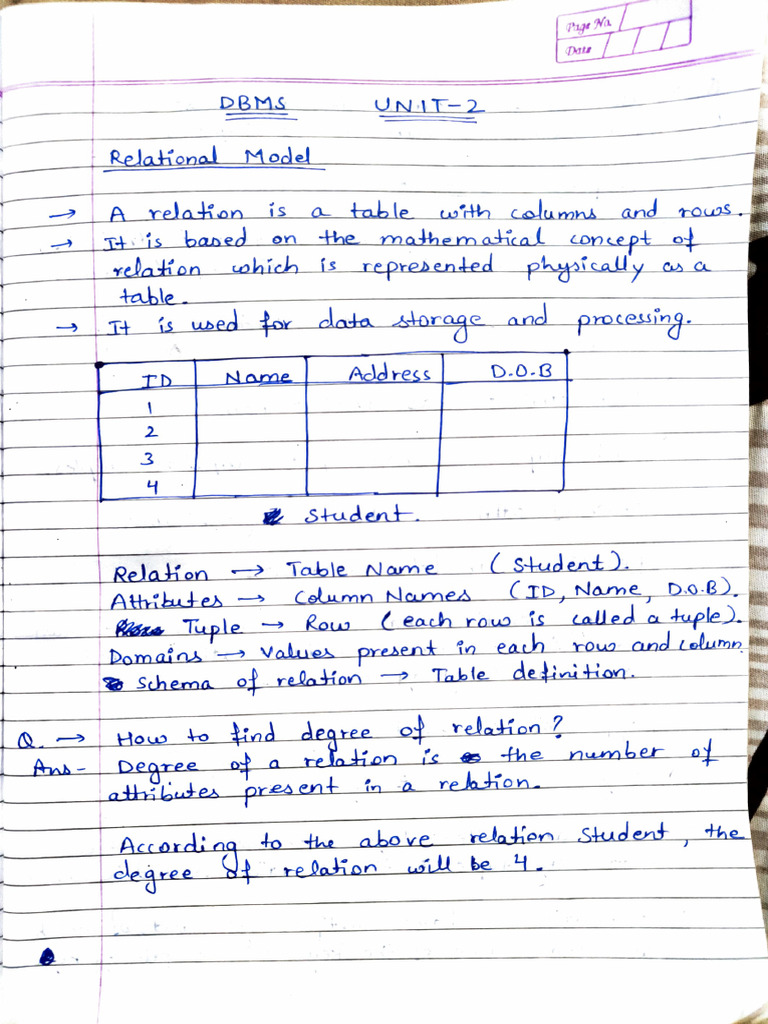 Page No.
Date
DBMS UNIT-2
Relational Model
→ A relation is a table with columns and rows.
→ It is based on the mathematical concept of
relation which is represented physically as a
table.
→ It is used for data storage and processing.
ID Name Address D.O.B
1
2
3
4
Student.
Relation → Table Name (Student).
Attributes → Column Names (ID, Name, D.O.B).
Tuple → Row (each row is called a tuple).
Domains → Values present in each row and column.
Schema of relation → Table definition.
Q. → How to find degree of relation?
Ans - Degree of a relation is the number of
attributes present in a relation.
According to the above relation Student, the
degree of relation will be 4.